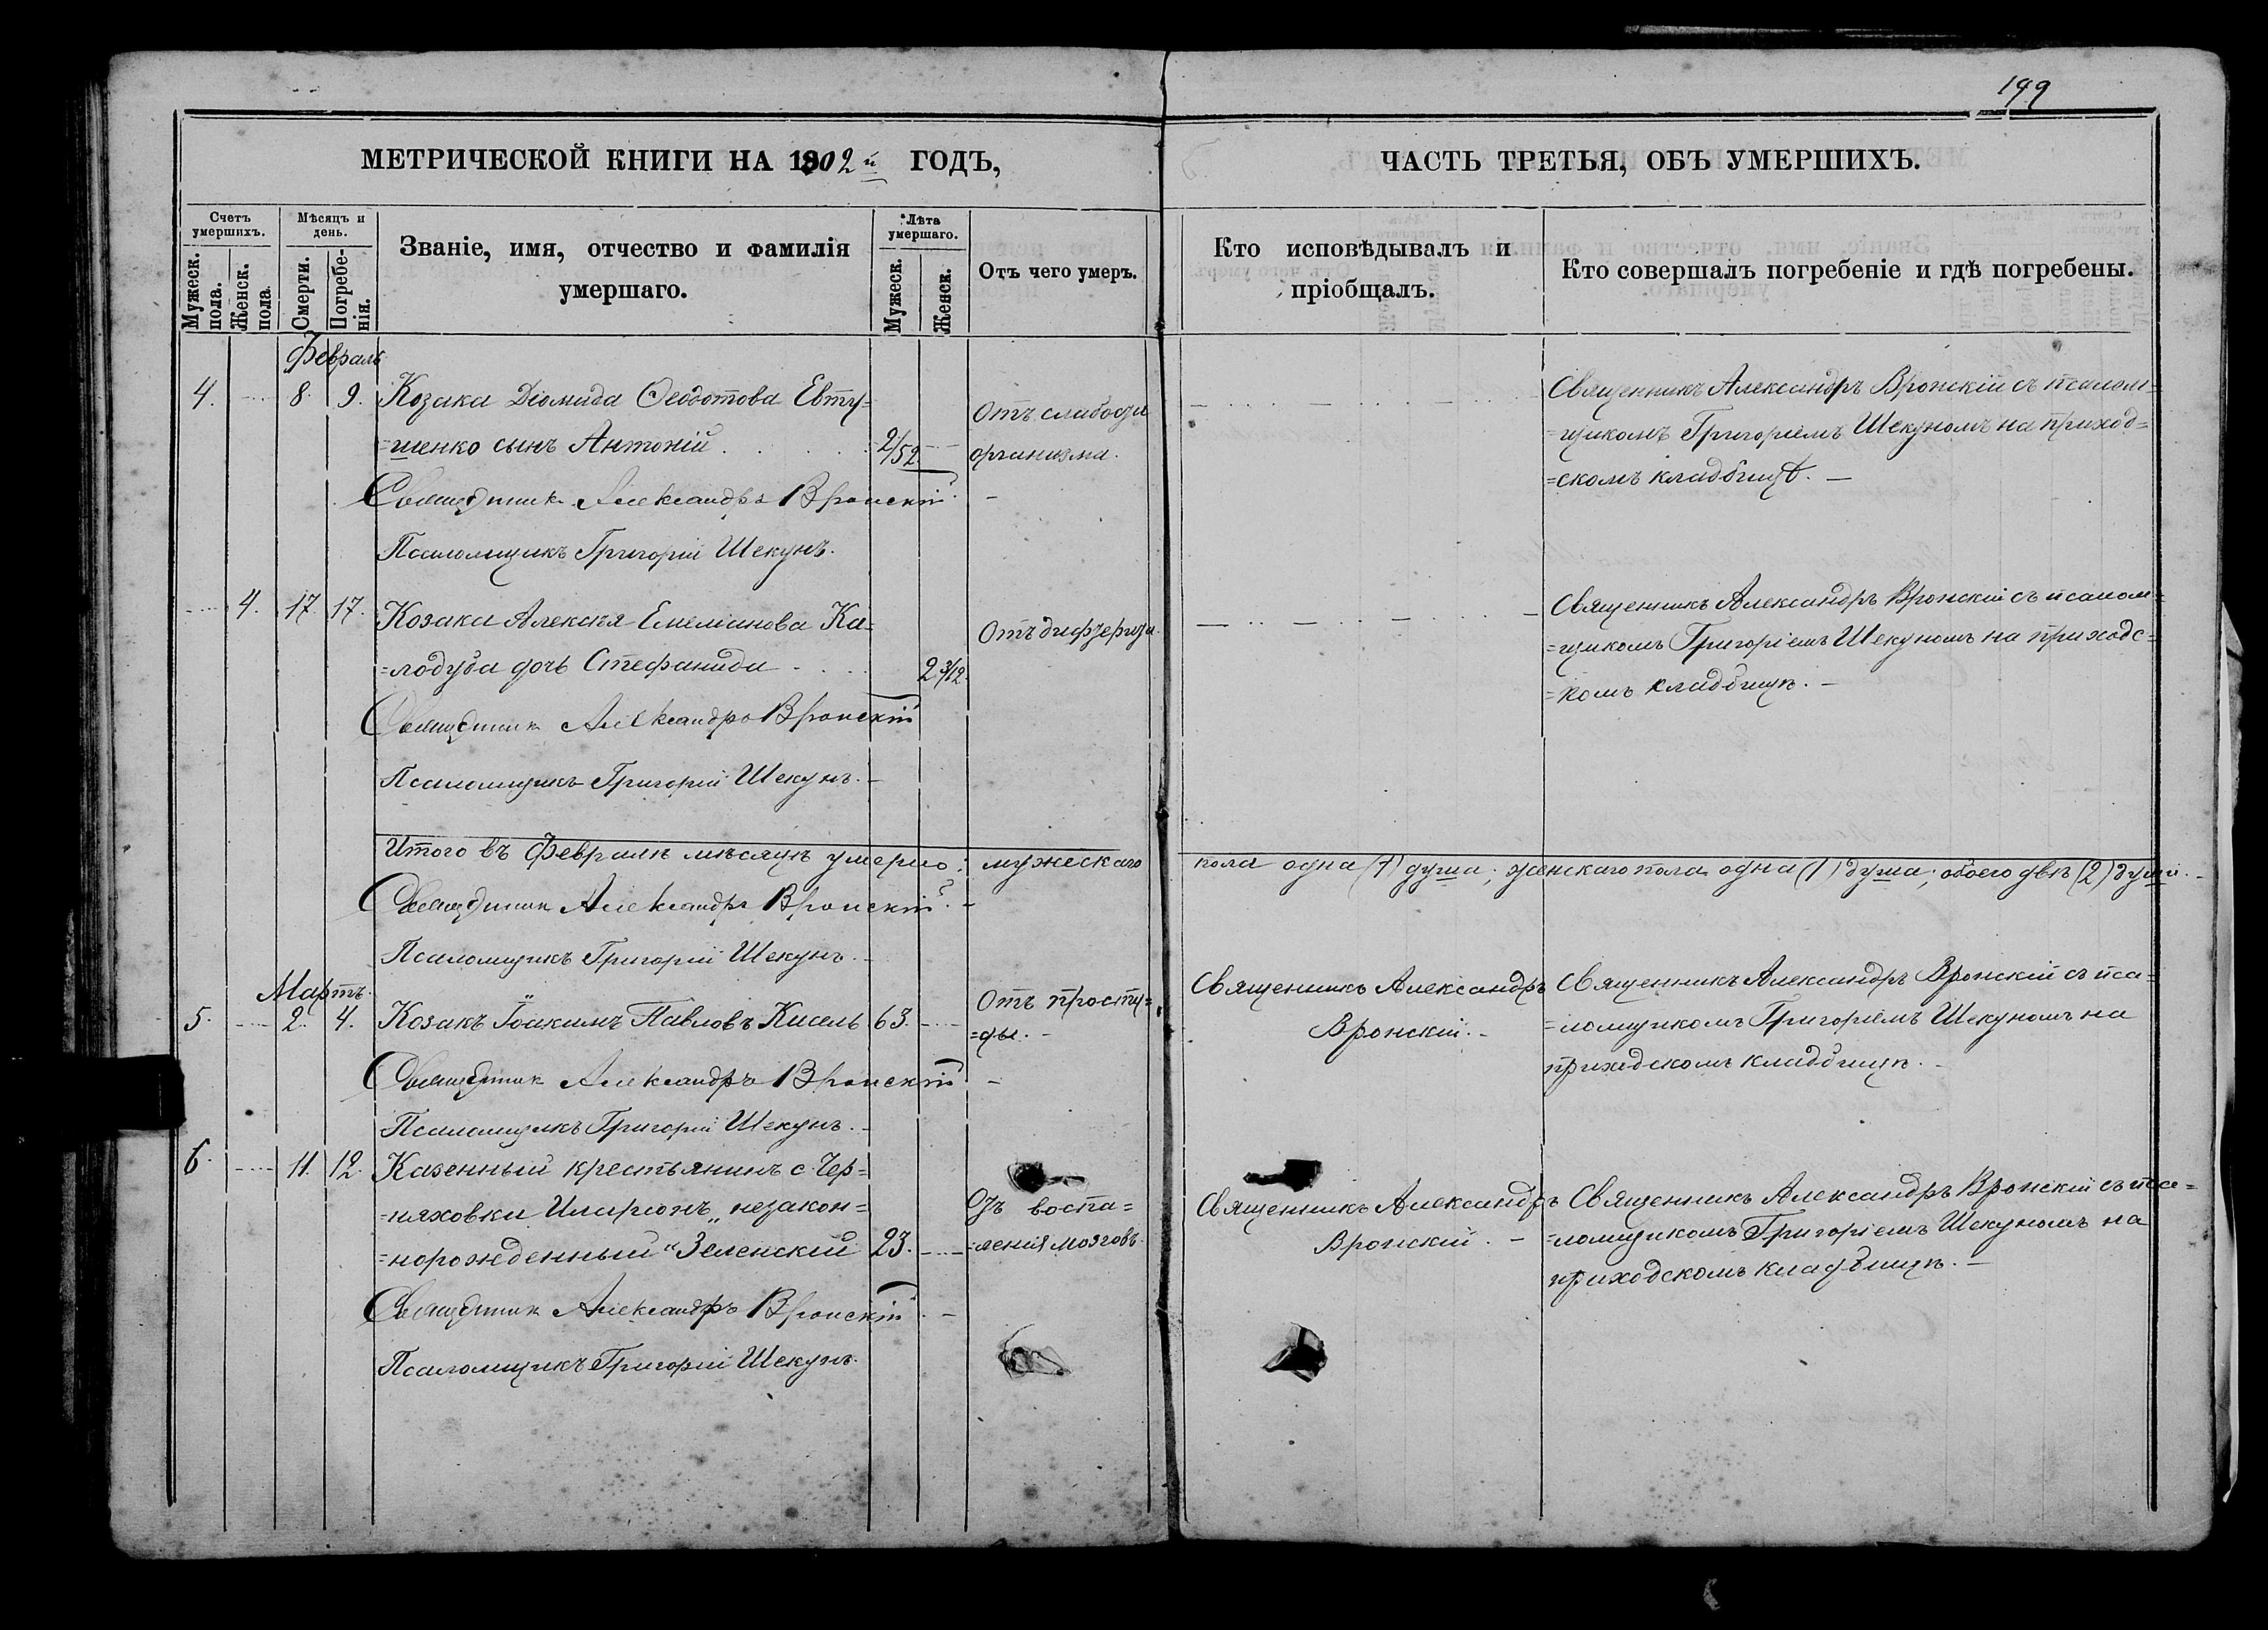 199
МЕТРИЧЕСКОЙ КНИГИ НА 1902й ГОДЪ,
ЧАСТЬ ТРЕТЬЯ, ОБЪ УМЕРШИХЪ.
Счетъ умершихъ.
Мужеск. пола.
Женск. пола.
Мѣсяцъ и день.
Смерти.
Погребе-нія.
Званіе, имя, отчество и фамилія
умершаго.
Лѣта умершаго.
Мужеск.
Женск.
Отъ чего умеръ.
Кто исповѣдывалъ и
пріобщалъ.
Кто совершалъ погребеніе и гдѣ погребены.
Февраль
4. 8. 9. Козака Діомида Ѳеодотова Евту=
=шенко сынъ Антоній 2/52
Отъ слабости
организма.
Священникъ Александръ Вронскій съ псалом=
=щикомъ Григоріемъ Шекуномъ на приход=
=скомъ кладбищѣ. —
Священник Александръ Вронскій. —
Псаломщикъ Григорій Шекунъ.
4. 17. 17. Козака Алексѣя Емеліанова Ка=
=лодуба дочь Стефанида 2 3/12.
Отъ дифтерита.
Священникъ Александръ Вронскій съ псалом=
=щикомъ Григоріемъ Шекуномъ на приходс=
=комъ кладбищѣ. —
Священник Александръ Вронскій
Псаломщикъ Григорій Шекунъ. —
Итого въ Февралѣ мѣсяцѣ умерло: мужескаго пола одна (1) душа; женскаго пола одна (1) душа; обоего двѣ (2) души. —
Священник Александръ Вронскій. —
Псаломщикъ Григорій Шекунъ. —
Мартъ.
5. 2. 4. Козакъ Іоакимъ Павловъ Кисель 63.
Отъ просту=
=ды. —
Священникъ Александръ
Вронскій. —
Священникъ Александръ Вронскій съ пса=
=ломщикомъ Григоріемъ Шекуномъ на
приходскомъ кладбищѣ. —
Священник Александръ Вронскій —
Псаломщикъ Григорій Шекунъ. —
6. 11. 12. Казенный крестьянинъ с. Чер=
=няховки Иларіонъ „незакон=
=норожденный“ Зеленскій 23.
Отъ воспа=
=ленія мозговъ.
Священникъ Александръ
Вронскій. —
Священникъ Александръ Вронскій съ пса=
=ломщикомъ Григоріемъ Шекуномъ на
приходскомъ кладбищѣ. —
Священник Александръ Вронскій. —
Псаломщикъ Григорій Шекунъ.